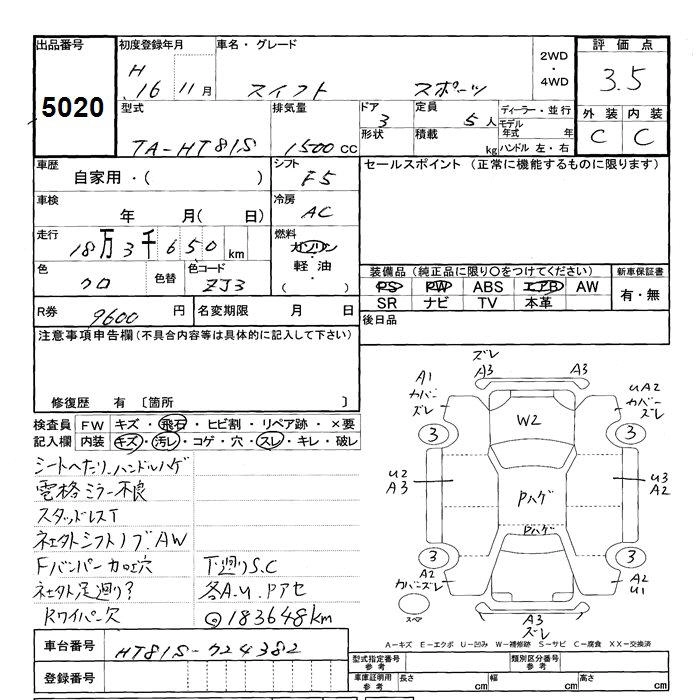 出品番号 初度登録年月 車名・グレード 評価点
5020 H 16 11月 スイフト スポーツ 2WD ・ 4WD 3.5
型式 排気量 ドア 定員 ディーラー・並行 外装 内装
TA-HT81S 1500cc 3 5人 モデル年式 年 C C
形状 積載 kg ハンドル 左・右
車歴 シフト セールスポイント (正常に機能するものに限ります)
自家用・( ) F5
車検 冷房
年 月( 日) AC
走行 燃料
18万3千650km ガソリン・軽油・( )
色 色替 色コード 装備品(純正品に限り○をつけてください) 新車保証書
クロ ZJ3 PS PW ABS エアB AW 有・無
SR ナビ TV 本革
R券 9600円 名変期限 月 日 後日品
注意事項申告欄(不具合内容等は具体的に記入して下さい)
修復歴 有 〔箇所 〕
検査員 FW キズ・飛石・ヒビ割・リペア跡・×要
記入欄 内装 キズ・汚レ・コゲ・穴・スレ・キレ・破レ
シートヘたり、ハンドルハゲ
電格ミラー不良
スタッドレスT
社外シフトノブ、AW
Fバンパー加工穴 下廻りS.C
社外足廻り? 各A.U.Pアセ
Rワイパー欠 ◎183648km
車台番号 HT81S-724382
登録番号
ズレ
A3 A3
A1 カバーズレ
UA2 カバーズレ
W2
3 3
U2 A3
U3 A2
Pハゲ
Pハゲ
3 3
A2 カバーズレ
A2 U1
スペア
A3
ズレ
A-キズ E-エクボ U-凹み W-補修跡 S-サビ C-腐食 XX-交換済
型式指定番号 参考 類別区分番号 参考
車庫証明用 参考 長さ cm 幅 cm 高さ cm